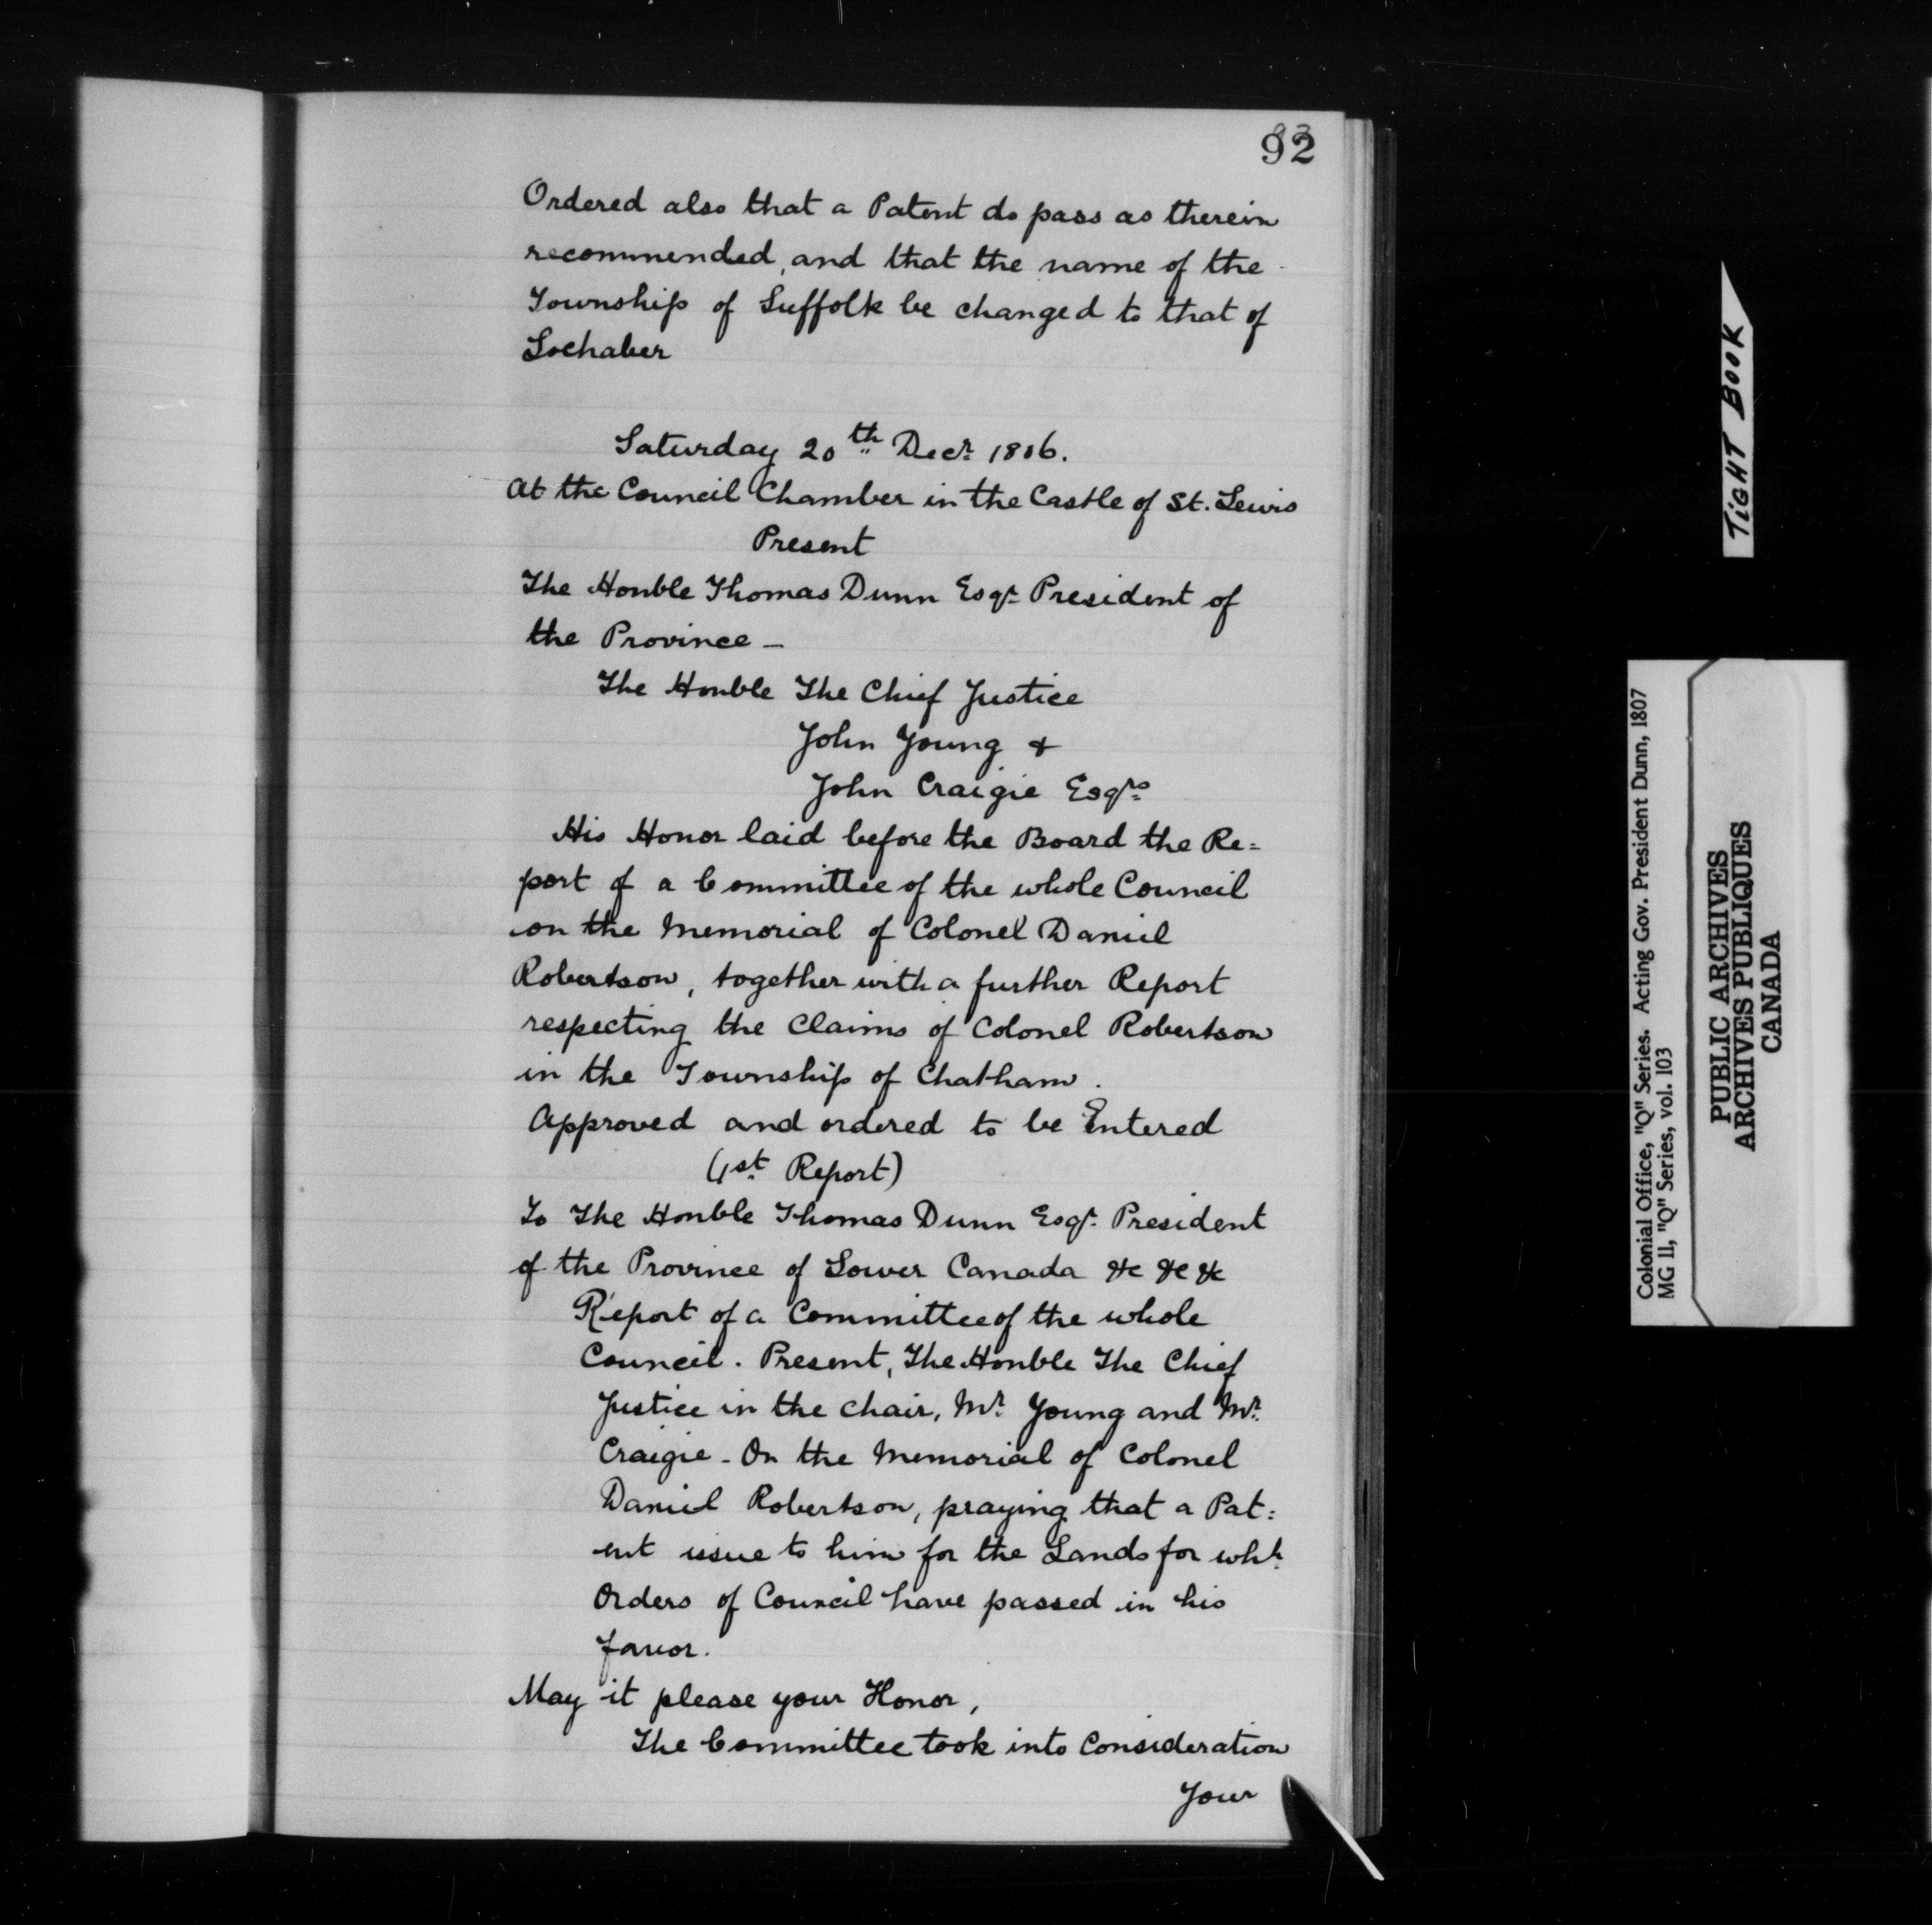 92
Ordered also that a Patent do pass as therein
recommended, and that the name of the
Township of Suffolk be changed to that of
Lochaber
Saturday 20th Decr 1806.
At the Council Chamber in the Castle of St. Lewis
Present
The Honble Thomas Dunn Esqr President of
the Province —
The Honble The Chief Justice
John Young &
John Craigie Esqrs
His Honor laid before the Board the Re=
port of a Committee of the whole Council
on the Memorial of Colonel Daniel
Robertson, together with a further Report
respecting the Claims of Colonel Robertson
in the Township of Chatham.
Approved and ordered to be Entered
(1st Report)
To The Honble Thomas Dunn Esqr. President
of the Province of Lower Canada &c &c &c
Report of a Committee of the whole
Council. Present, The Honble The Chief
Justice in the chair, Mr. Young and Mr.
Craigie - On the Memorial of Colonel
Daniel Robertson, praying that a Pat:
ent issue to him for the Lands for whh.
Orders of Council have passed in his
favor.
May it please your Honor,
The Committee took into Consideration
Your
TIGHT BOOK
Colonial Office, "Q" Series. Acting Gov. President Dunn, 1807
MG 11, "Q" Series, vol. 103
PUBLIC ARCHIVES
ARCHIVES PUBLIQUES
CANADA